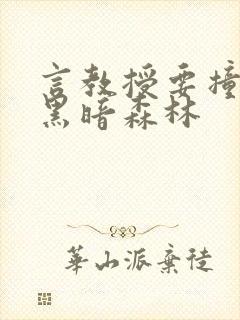 言教授要撞
黑暗森林
華山派棄徒